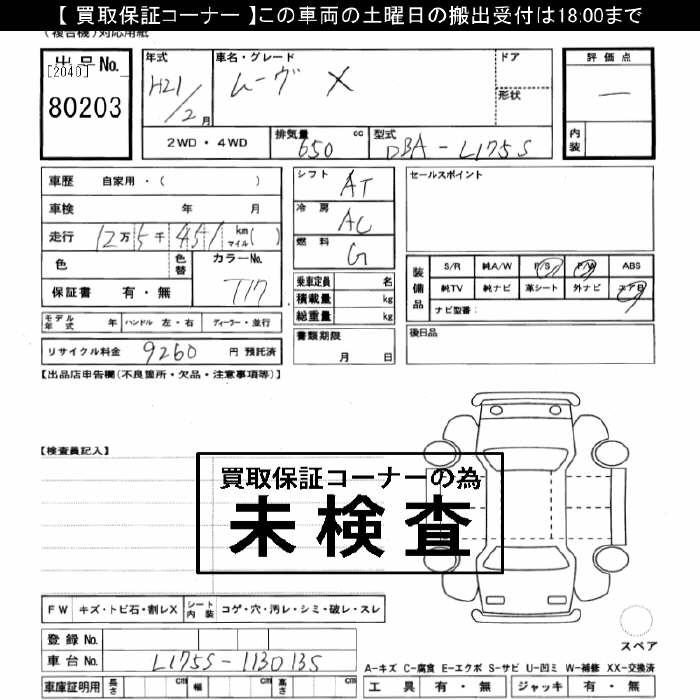 【 買取保証コーナー 】この車両の土曜日の搬出受付は18:00まで
(複合機)対応用紙
出品No.
[2040]
80203
年式
H21/2月
車名・グレード
ムーヴ X
ドア
形状
評価点
—
内装
2WD・4WD
排気量 650 cc
型式 DBA-L175S
車歴 自家用・( )
車検 年 月
走行 12万5千451 km マイル( )
色
色替
カラーNo. T17
保証書 有・無
モデル年式 年 ハンドル 左・右 ディーラー・並行
リサイクル料金 9260 円 預託済
シフト AT
冷房 AC
燃料 G
乗車定員 名
積載量 kg
総重量 kg
書類期限
月 日
セールスポイント
装備品
S/R 純A/W P/S P/W ABS
純TV 純ナビ 革シート 外ナビ エアB
ナビ型番:
後日品
【出品店申告欄(不良箇所・欠品・注意事項等)】
【検査員記入】
買取保証コーナーの為
未検査
FW キズ・トビ石・割レX シート内装 コゲ・穴・汚レ・シミ・破レ・スレ
登録No.
車台No. L175S-1130135
車庫証明用 長さ cm 幅 cm 高さ cm
スペア
A-キズ C-腐食 E-エクボ S-サビ U-凹ミ W-補修 XX-交換済
工具 有・無 ジャッキ 有・無